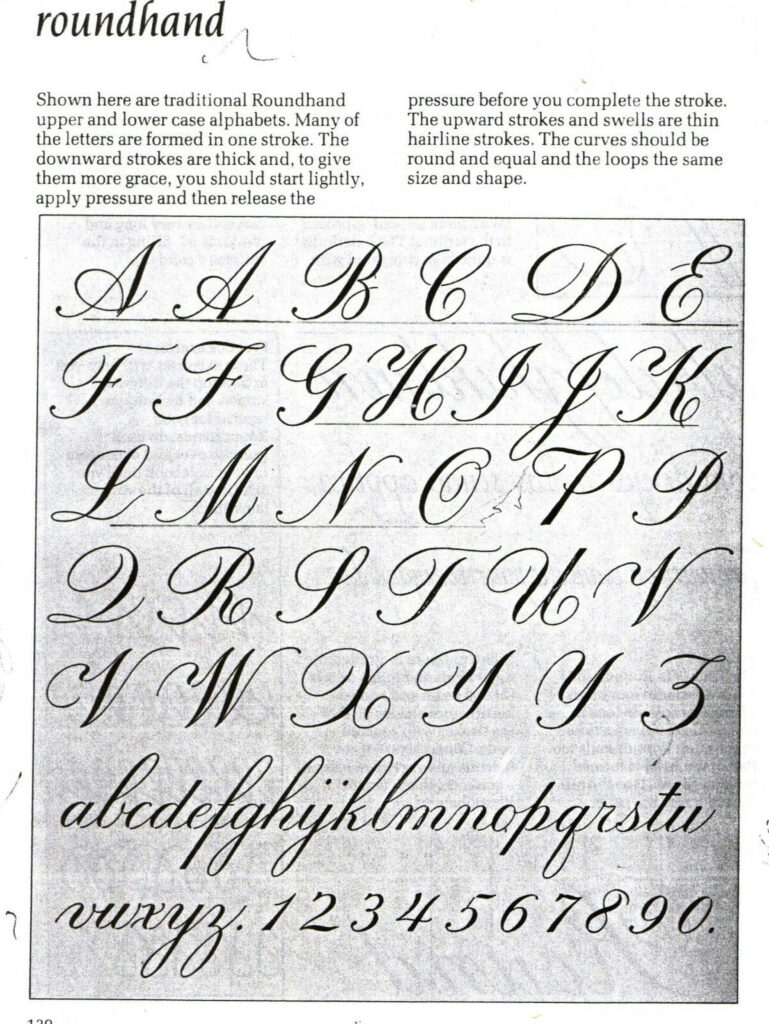 roundhand
Shown here are traditional Roundhand
upper and lower case alphabets. Many of
the letters are formed in one stroke. The
downward strokes are thick and, to give
them more grace, you should start lightly,
apply pressure and then release the
pressure before you complete the stroke.
The upward strokes and swells are thin
hairline strokes. The curves should be
round and equal and the loops the same
size and shape.
A A B C D E
F F G H I J K
L M N O P P
Q R S T U V
V W X Y Y Z
abcdefghijklmnopqrstu
vwxyz. 1 2 3 4 5 6 7 8 9 0.